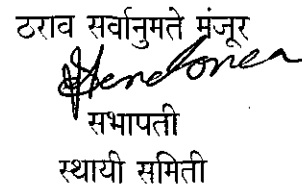 ठराव सर्वानुमते मंजूर
सभापती
स्थायी समिती